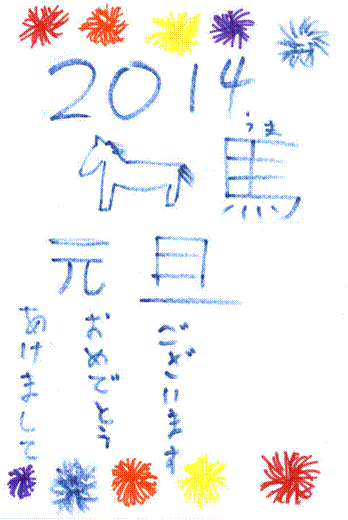 2014
うま
馬
元旦
あけまして
おめでとう
ございます